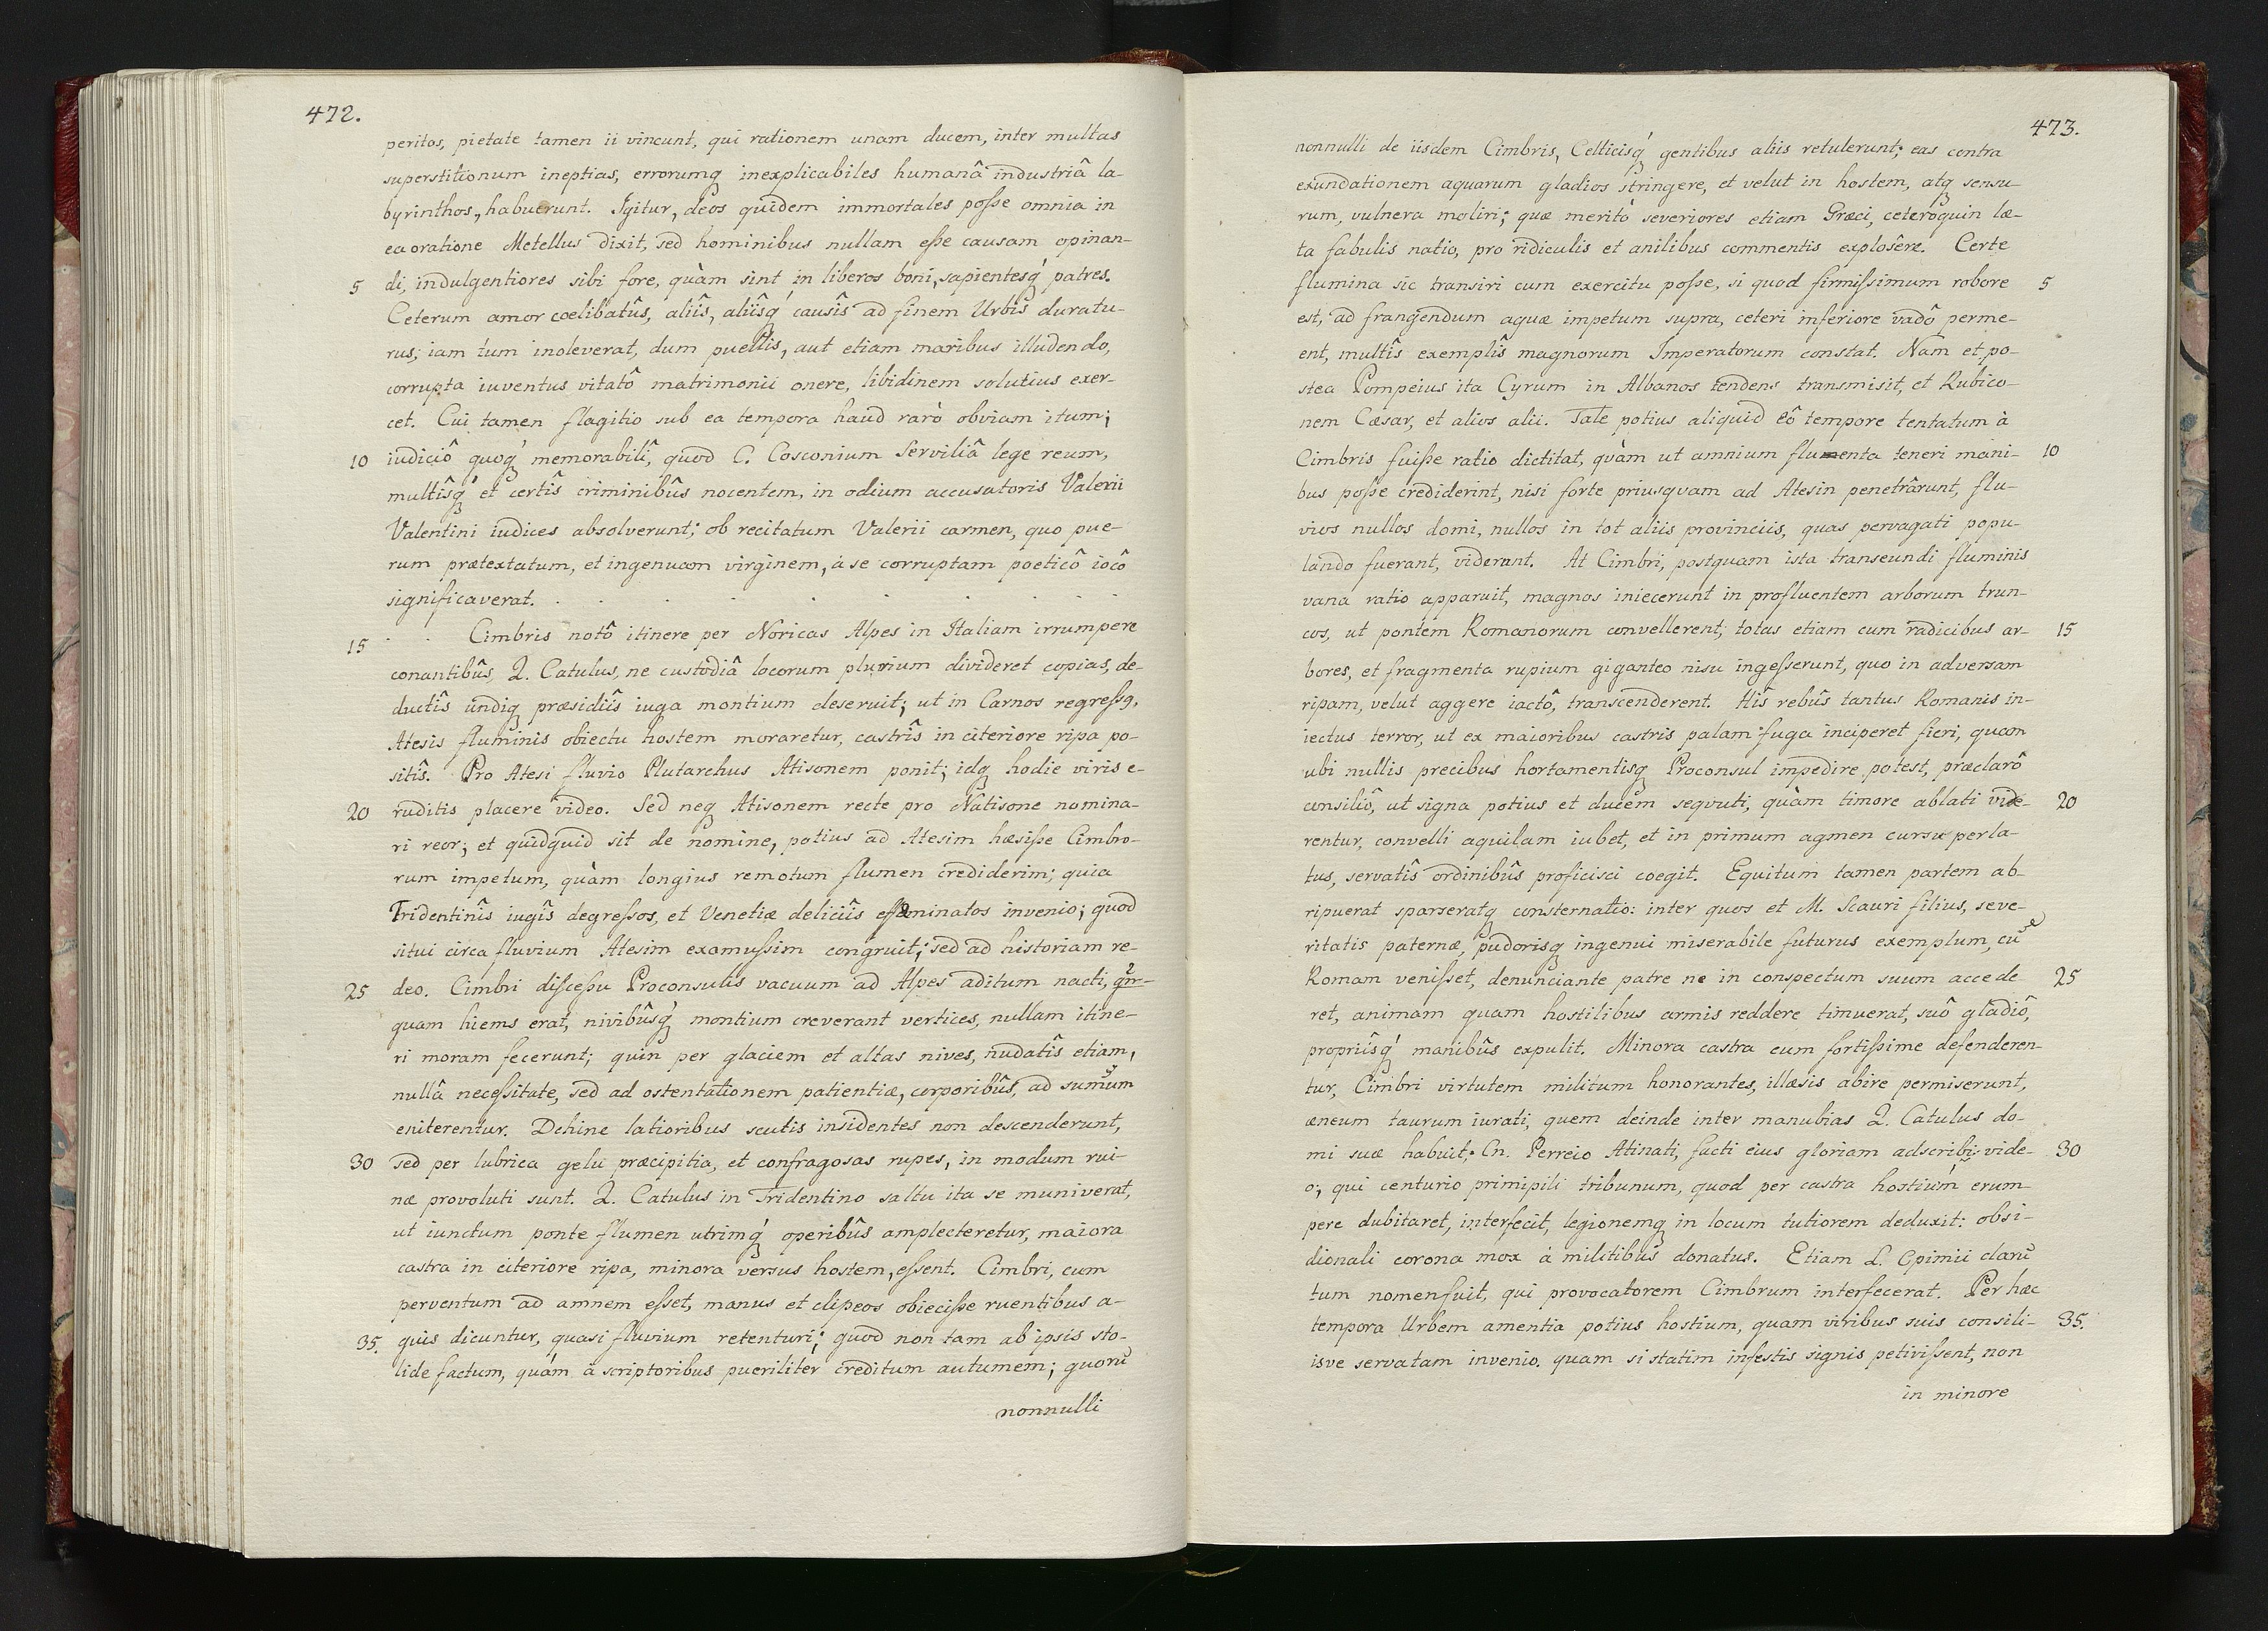 472.
peritos, pietate tamen ii vincunt, qui rationem unam ducem, inter multas
superstitionum ineptias, errorumq inexplicabiles humanâ industriâ la-
byrinthos, habuerunt. Igitur, deos quidem immortales poſse omnia in
ea oratione Metellus dixit, sed hominibus nullam eſse causam opinan-
5 di, indulgentiores sibi fore, quàm sint in liberos boni, sapientesq́ patres.
Ceterum amor coelibatûs, aliîs, aliîsq́ causîs ad finem Urbis duratu-
rus; iam tum inoleverat, dum puellis, aut etiam maribus illudendo,
corrupta iuventus vitatô matrimonii onere, libidinem solutius exer-
cet. Cui tamen flagitio sub ea tempora haud rarò obviam itum;
10 iudiciô quoq́ memorabilî, quod C. Cosconium Serviliâ lege reum,
multîsq́ et certîs criminibûs nocentem, in odium accusatoris Valerii
Valentini iudices absolverunt; ob recitatum Valerii carmen, quo pue-
rum prætextatum, et ingenuam virginem, à se corruptam poeticô iocô
significaverat. . . . . . . . . .
15 . . Cimbris notô itinere per Noricas Alpes in Italiam irrumpere
conantibûs, Q. Catulus, ne custodiâ locorum plurium divideret copias, de-
ductîs undiq præsidiîs iuga montium deseruit; ut in Carnos regreſsꝰ,
Atesis fluminis obiectu hostem moraretur, castrîs in citeriore ripa po-
sitîs. Pro Atesi fluvio Plutarchus Atisonem ponit; idq hodie viris e-
20 ruditis placere video. Sed neq Atisonem recte pro Natisone nomina-
ri reor; et quidquid sit de nomine, potius ad Atesim hæsiſse Cimbro-
rum impetum, quàm longius remotum flumen crediderim; quia
Tridentinîs iugîs degreſsos, et Venetiæ deliciîs effeminatos invenio; quod
situi circa fluvium Atesim examuſsim congruit; sed ad historiam re-
25 deo. Cimbri diſceſsu Proconsulis vacuum ad Alpes aditum nacti,
quam hiems erat, nivibûsq́ montium creverant vertices, nullam itine-
ri moram fecerunt; quin per glaciem et altas nives, nudatîs etiam,
nullâ neceſsitate, sed ad ostentationem patientiæ, corporibûs, ad sum̃um
eniterentur. Dehinc latioribus scutis insidentes non descenderunt,
30 sed per lubrica gelu præcipitia, et confragosas rupes, in modum rui-
næ provoluti sunt. Q. Catulus in Tridentino saltu ita se muniverat,
ut iunctum ponte flumen utrimq́ operibûs amplecteretur, maiora
castra in citeriore ripa, minora versus hostem, eſsent. Cimbri, cum
perventum ad amnem eſset, manus et clipeos obieciſse ruentibus a-
35. quis dicuntur, quasi fluvium retenturi; quod non tam ab ipsis sto-
lide factum, quàm à scriptoribus pueriliter creditum autumem; quorũ
nonnulli
473.
nonnulli de iisdem Cimbris, Celticisq́ gentibus aliis retulerunt; eas contra
exundationem aquarum gladios stringere, et velut in hostem, atq sensu-
rum, vulnera moliri; quæ meritò severiores etiam Græci, ceteróquin læ-
ta fabulis natio, pro ridiculis et anilibus commentis explosêre. Certe
flumina sic transiri cum exercitu poſse, si quod firmiſsimum robore 5
est, ad frangendum aquæ impetum supra, ceteri inferiore vadô perme-
ent, multîs exemplîs magnorum Imperatorum constat. Nam et po-
stea Pompeius ita Cyrum in Albanos tendens transmisit, et Rubico-
nem Cæsar, et alios alii. Tale potius aliquid eô tempore tentatum à
Cimbris fuiſse ratio dictitat, quàm ut amnium fluenta teneri mani- 10
bus poſse crediderint, nisi forte priusquam ad Atesin penetrârunt, flu-
vios nullos domi, nullos in tot aliis provinciis, quas pervagati popu-
lando fuerant, viderant. At Cimbri, postquam ista transeundi fluminis
vana ratio apparuit, magnos iniecerunt in profluentem arborum trun-
cos, ut pontem Romanorum convellerent; totas etiam cum radicibus ar- 15
bores, et fragmenta rupium giganteo nisu ingeſserunt, quo in adversam
ripam, velut aggere iactô, transcenderent. Hîs rebûs tantus Romanis in-
iectus terror, ut ex maioribus castris palam fuga inciperet fieri, quam
ubi nullis precibus hortamentisq Proconsul impedire potest, præclarô
consiliô, ut signa potius et ducem sequuti, quàm timore ablati vide- 20
rentur, convelli aquilam iubet, et in primum agmen cursu perla-
tus, servatîs ordinibûs proficisci coegit. Equitum tamen partem ab-
ripuerat sparseratq consternatio: inter quos et M. Scauri filius, seve-
ritatis paternæ, pudorisq ingenui miserabile futurus exemplum, cũ
Romam veniſset, denunciante patre ne in conspectum suum accede 25
ret, animam quam hostilibus armis reddere timuerat, suô gladiô,
propriîsq́ manibûs expulit. Minora castra cum fortiſsime defenderen-
tur, Cimbri virtutem militum honorantes, illæsis abire permiserunt,
æneum taurum iurati, quem deinde inter manubias Q. Catulus do-
mi suæ habuit. Cn. Perreio Atinati, facti eius gloriam adscribi vide- 30
o; qui centurio primipili tribunum, quod per castra hostium erum-
pere dubitaret, interfecit, legionemq in locum tutiorem deduxit: obsi-
dionali corona mox à militibus donatus. Etiam L. Opimii clarũ
tum nomen fuit, qui provocatorem Cimbrum interfecerat. Per hæc
tempora Urbem amentia potius hostium, quam viribus suis consili- 35.
isve servatam invenio. quam si statim infestis signis petiviſsent, non
in minore